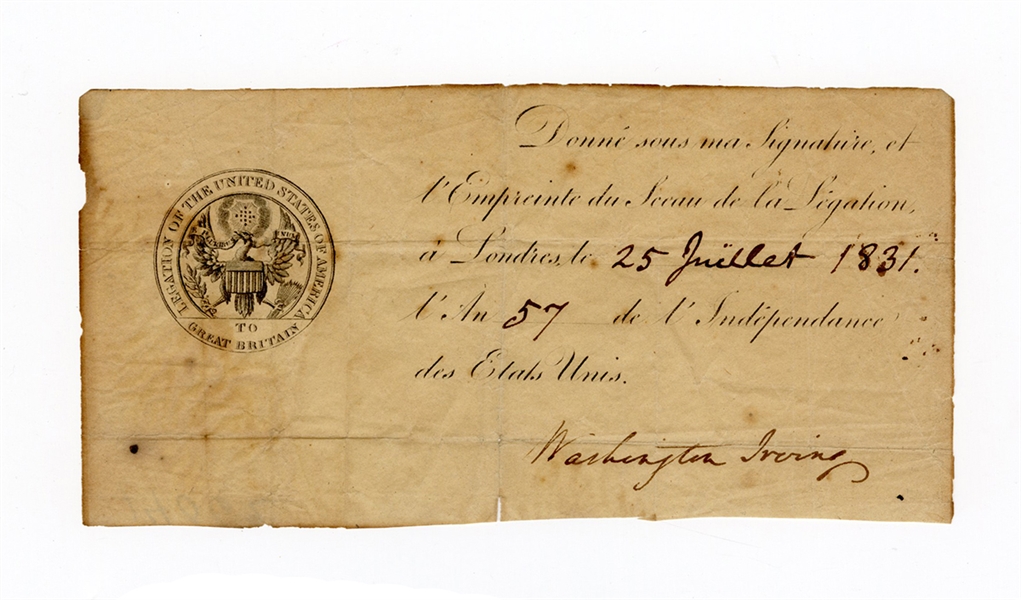 LEGATION OF THE UNITED STATES OF AMERICA
TO
GREAT BRITAIN
Donné sous ma Signature, et
l'Empreinte du Sceau de la Légation,
à Londres, le 25 Juïllet 1831.
l'An 57 de l'Indépendance
des Etats Unis.
Washington Irving